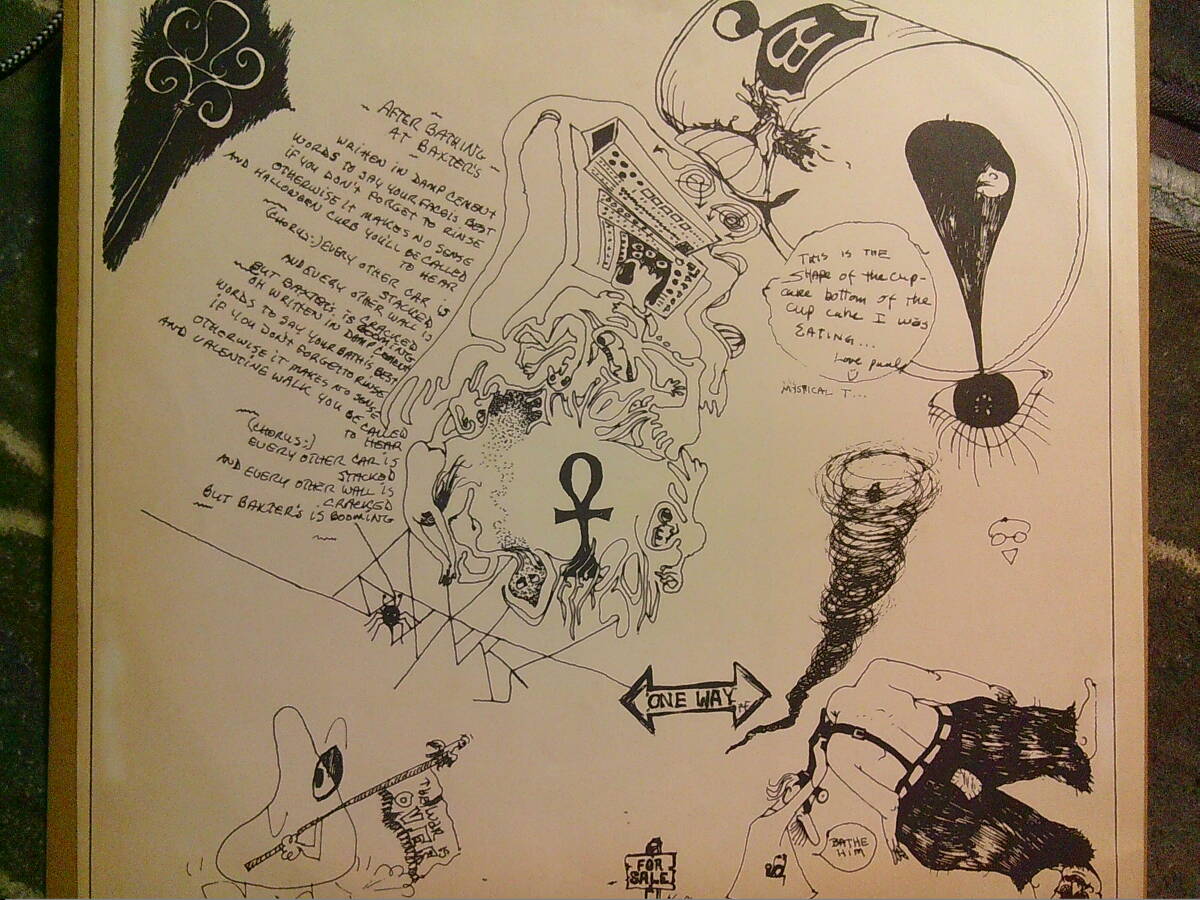 ~ AFTER BATHING ~
AT BAXTER'S
WRITTEN IN DAMP CEMENT
WORDS TO SAY YOUR FACE IS BEST
IF YOU DON'T FORGET TO RINSE
OTHERWISE IT MAKES NO SENSE
AND HALLOWEEN CURB YOU'LL BE CALLED
TO HEAR
(CHORUS:) EVERY OTHER CAR IS
STACKED
AND EVERY OTHER WALL IS
CRACKED
BUT BAXTER'S IS BOOMING
OH WRITTEN IN DAMP CEMENT
WORDS TO SAY YOUR BATH IS BEST
IF YOU DON'T FORGET TO RINSE
OTHERWISE IT MAKES NO SENSE
AND VALENTINE WALK YOU BE CALLED
TO HEAR
(CHORUS:)
EVERY OTHER CAR IS
STACKED
AND EVERY OTHER WALL IS
CRACKED
BUT BAXTER'S IS BOOMING
THIS IS THE
SHAPE of the cup-
cake bottom of the
cup cake I was
EATING...
Love paul
MYSTICAL T...
ONE WAY
THE WAR IS
OVER
FOR
SALE
BATHE
HIM